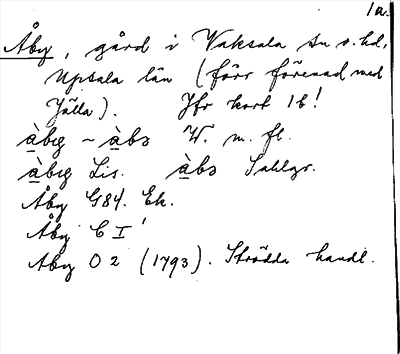 1a.
Åby, gård i Vaksala sn o. hd,
Upsala län (förr förenad med
Jälla). Jfr kort 1b!
àbɥ ~ àbs W. m. fl.
àbɥ Lis. àbs Sahlgr.
Åby G84. Ek.
Åby C I
Aby O 2 (1793). Strödda handl.